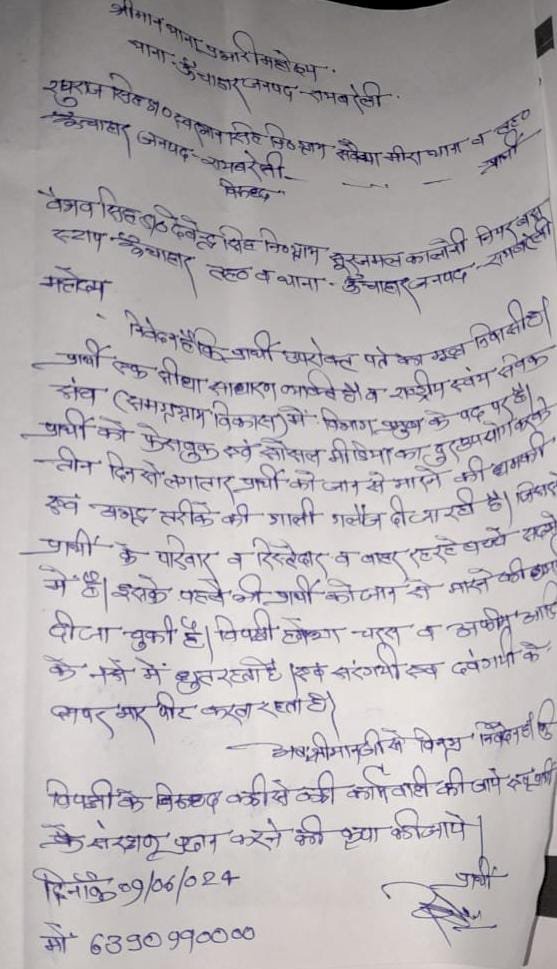 श्रीमान थाना प्रभारी महोदय
थाना - ऊँचाहार जनपद - रायबरेली
रघुराज सिंह s/o स्व० सिंह नि० ग्राम सवैया मीरा थाना व तह०
ऊँचाहार जनपद - रायबरेली - - - प्रार्थी
विरुद्ध
वैभव सिंह s/o देवेन्द्र सिंह नि० ग्राम सूरजमल कालोनी नियर बस
स्टाप - ऊँचाहार तह० व थाना - ऊँचाहार जनपद - रायबरेली
महोदय
निवेदन है कि प्रार्थी उपरोक्त पते का मूल निवासी है।
प्रार्थी एक सीधा साधारण व्यक्ति है व राष्ट्रीय स्वंय सेवक
संघ (समग्र ग्राम विकास) में विभाग प्रमुख के पद पर है।
प्रार्थी को फेसबुक एवं सोसल मीडिया का दुरुपयोग करके
तीन दिन से लगातार प्रार्थी को जान से मारने की धमकी
एवं अभद्र तरीके की गाली गलौज दी जा रही है। जिससे
प्रार्थी के परिवार व रिस्तेदार व बाहर रह रहे बच्चे सदमे
में है। इसके पहले भी प्रार्थी को जान से मारने की धमकी
दी जा चुकी है। विपक्षी हमेशा चरस व अफीम आदि
के नशे में धुत रहता है। एवं सरंगयी एवं दबंगयी के
बल पर मार पीट करता रहता है।
अतः श्रीमान जी से विनम्र निवेदन है कि
विपक्षी के विरुद्ध कड़ी से कड़ी कार्यवाही की जाये एवं प्रार्थी
को संरक्षण प्रदान करने की कृपा की जाये।
दिनांक 09/06/024
प्रार्थी
मो० 6390990000